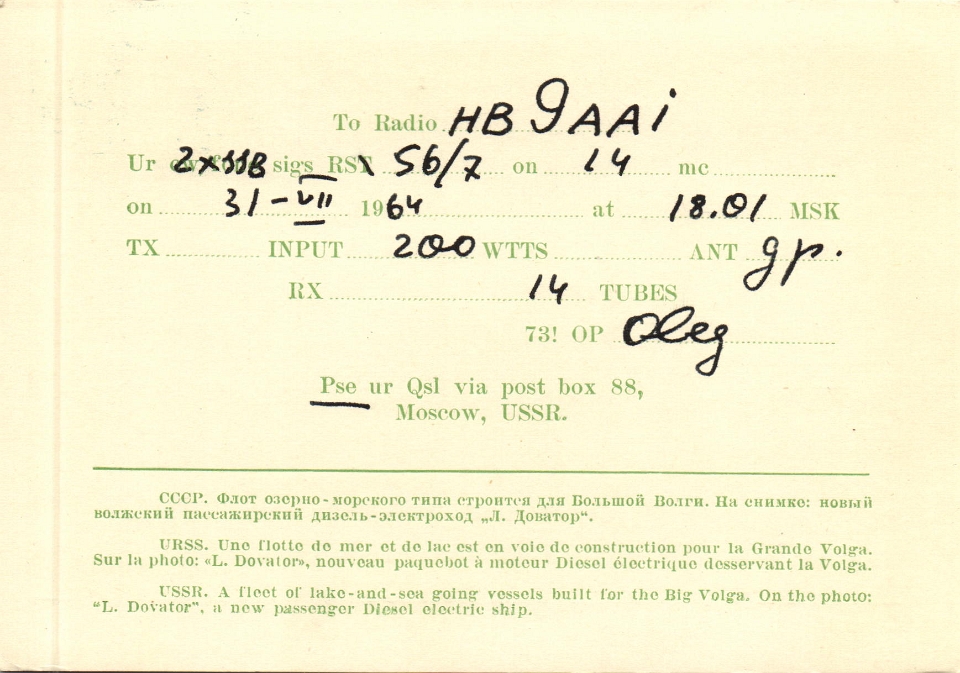 To Radio HB9AAi
Ur 2xSSB sigs RST 56/7 on 14 mc
on 31-VII 1964 at 18.01 MSK
TX INPUT 200 WTTS ANT gp.
RX 14 TUBES
73! OP Oleg
Pse ur Qsl via post box 88,
Moscow, USSR.
СССР. Флот озерно-морского типа строится для Большой Волги. На снимке: новый
волжский пассажирский дизель-электроход „Л. Доватор“.
URSS. Une flotte de mer et de lac est en voie de construction pour la Grande Volga.
Sur la photo: «L. Dovator», nouveau paquebot à moteur Diesel électrique desservant la Volga.
USSR. A fleet of lake-and-sea going vessels built for the Big Volga. On the photo:
“L. Dovator”, a new passenger Diesel electric ship.